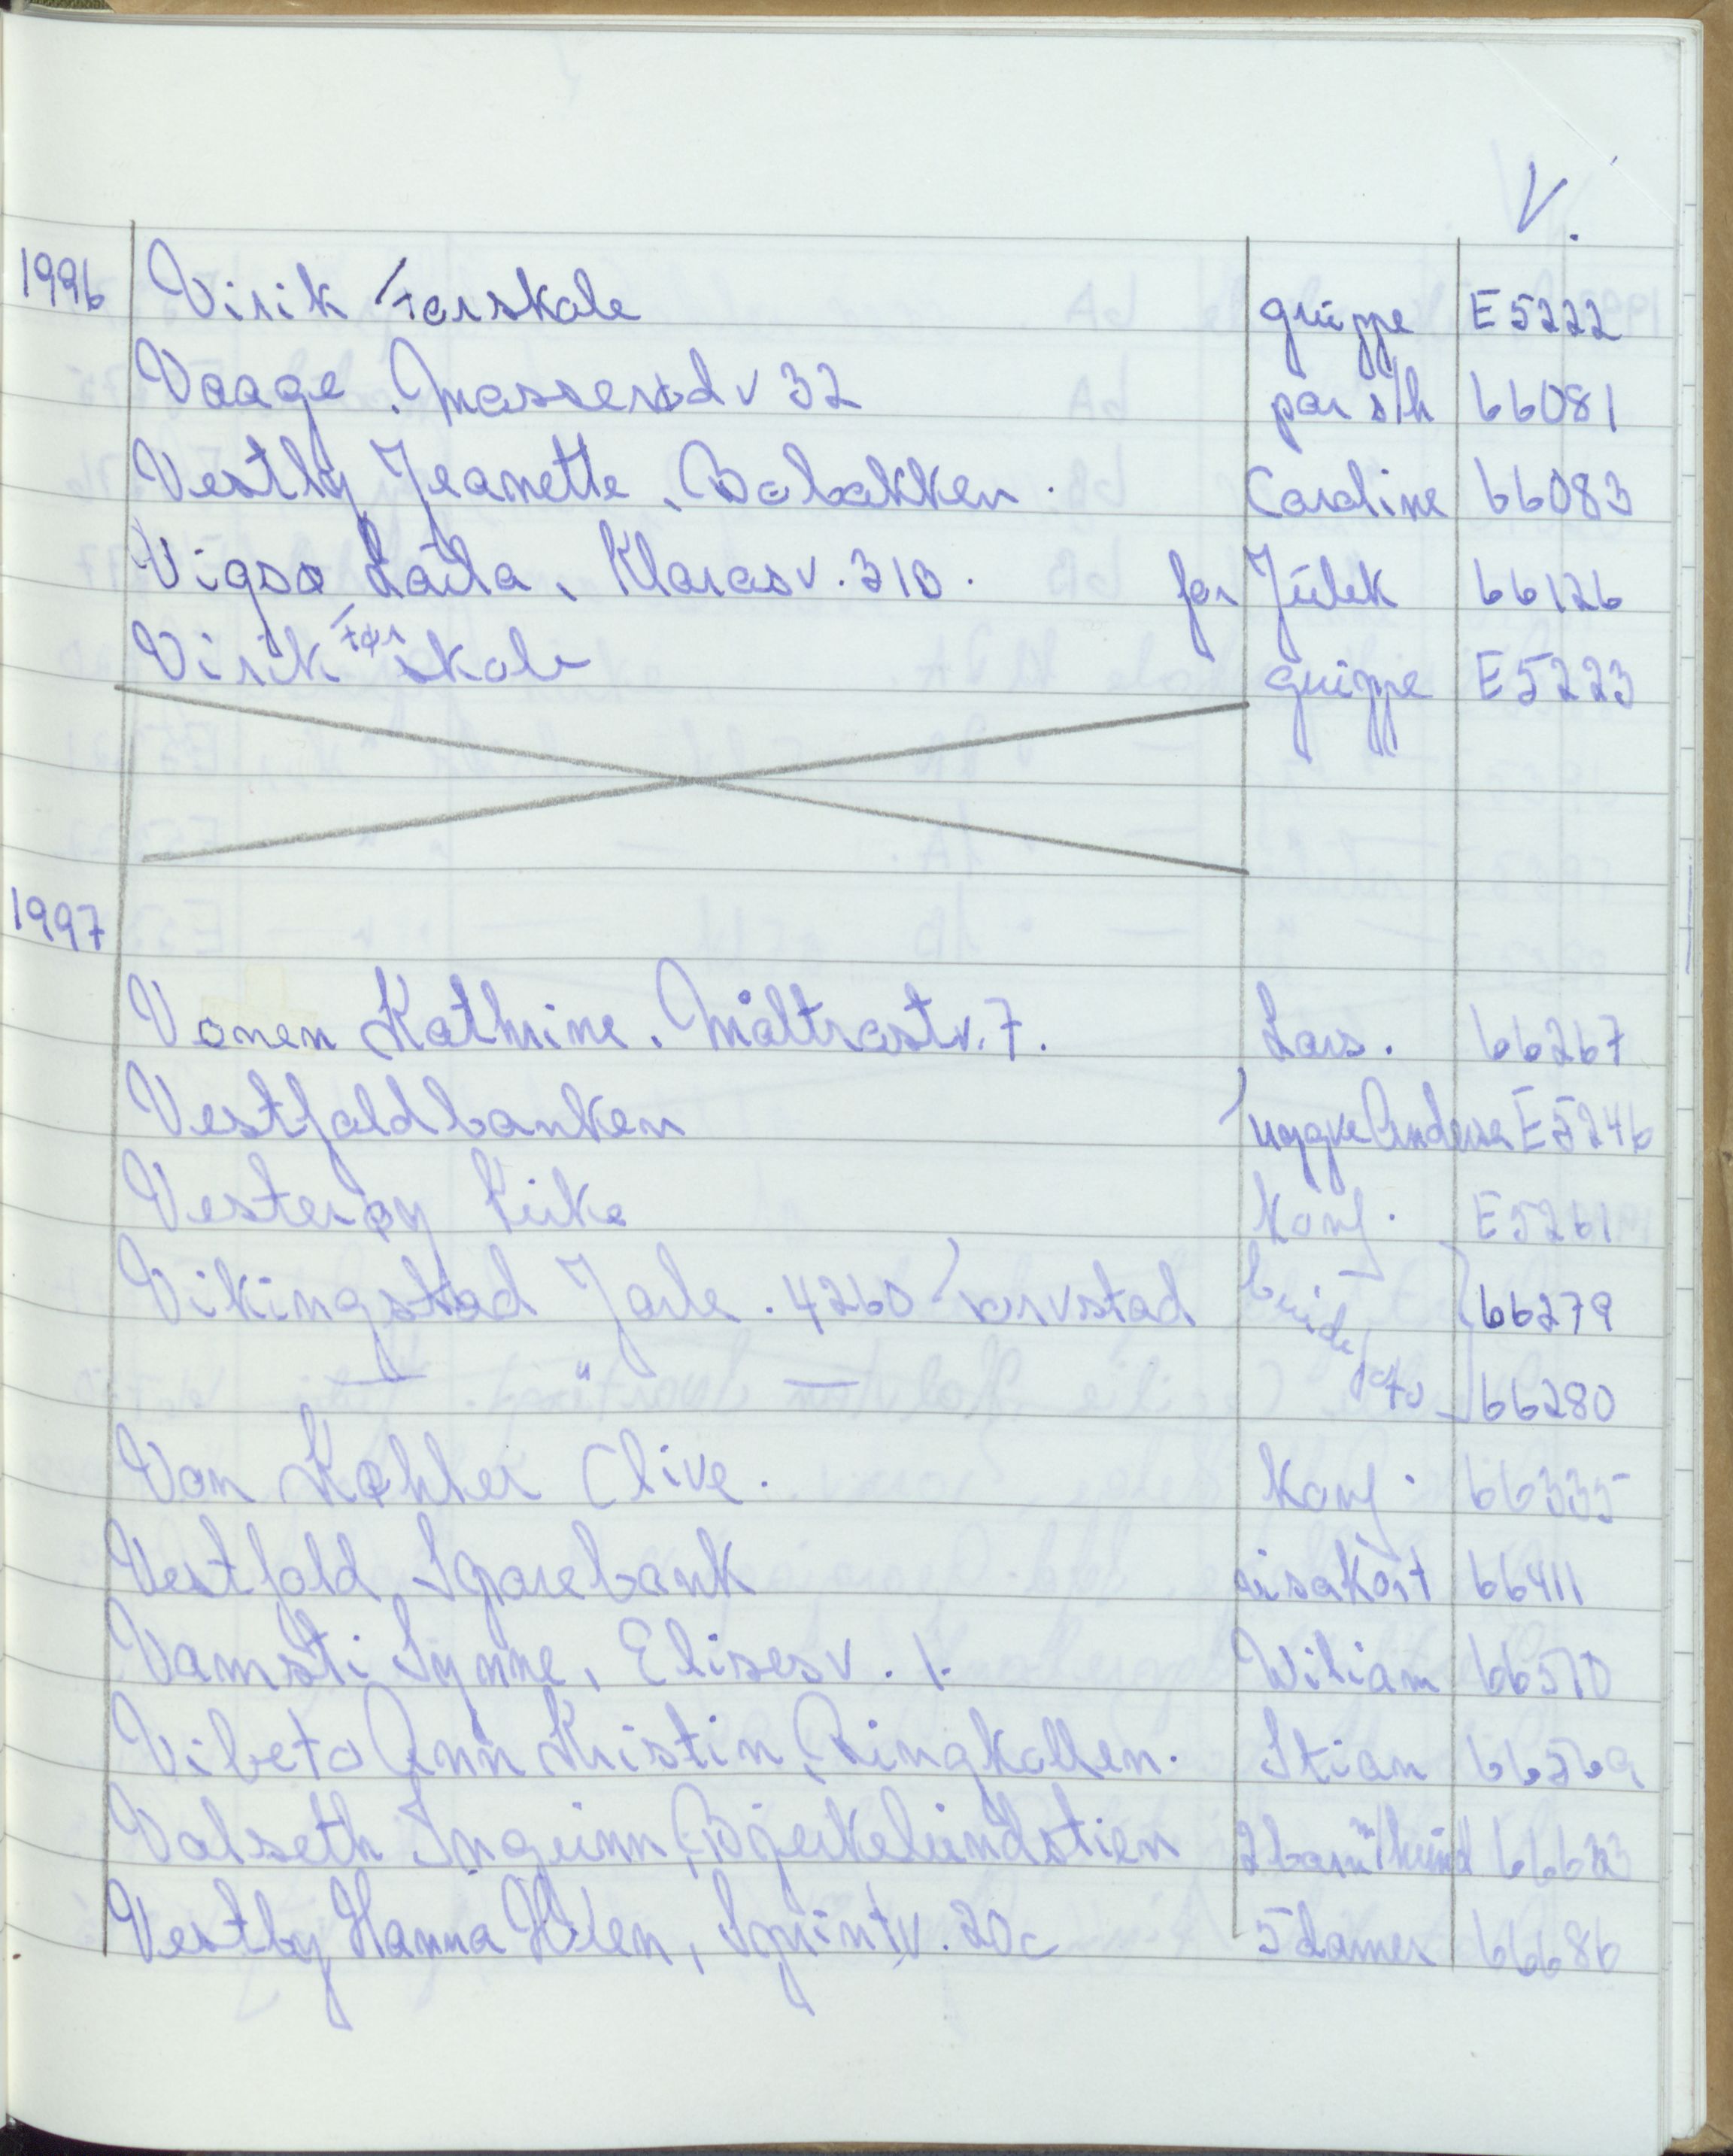 V.
1996 Virik Førskole gruppe E5222
Vaage, Masserødv 32 par s/h 66081
Vestly Jeanette, Bobakken. Caroline 66083
Vigsø Laila, Klarasv. 31B. for Julek 66126
Virik Førskole gruppe E5223
1997
Vonen Kathrine, Måltrostv. 7. Lars. 66267
Vestfoldbanken Yngve Anderse E5246
Vesterøy Kirke Konf. E5261
Vikingstad Jarle. 4260 Torvstad brudefoto 66279
— " — 66280
Von Køhler Clive. Konf. 66335
Vestfold Sparebank visakort 66411
Vamsti Synne, Elisesv. 1. Wiliam 66570
Vibeto Ann Kristin, Ringkollen. Stian 66569
Valseth Ingunn, Bjerkelundstien 2barn m/hund
Vestby Hanna Helen, Sprintv. 20c 5 damer 66686